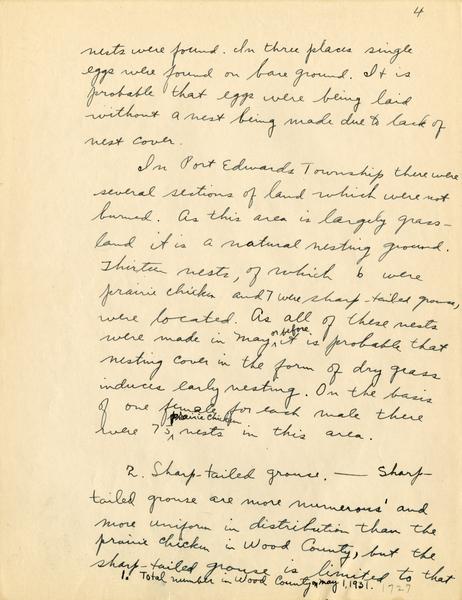 4
nests were found. In three places single
eggs were found on bare ground. It is
probable that eggs were being laid
without a nest being made due to lack of
nest cover.
In Port Edwards Township there were
several sections of land which were not
burned. As this area is largely grass-
land it is a natural nesting ground.
Thirteen nests, of which 6 were
prairie chicken and 7 were sharp-tailed grouse,
were located. As all of these nests
were made in May, or before, it is probable that
nesting cover in the form of dry grass
induces early nesting. On the basis
of one female for each male there
were 75 prairie chicken nests in this area.
2. Sharp-tailed grouse. — Sharp-
tailed grouse are more numerous' and
more uniform in distribution than the
prairie chicken in Wood County, but the
sharp-tailed grouse is limited to that
1. Total number in Wood County, May 1, 1931. 1727